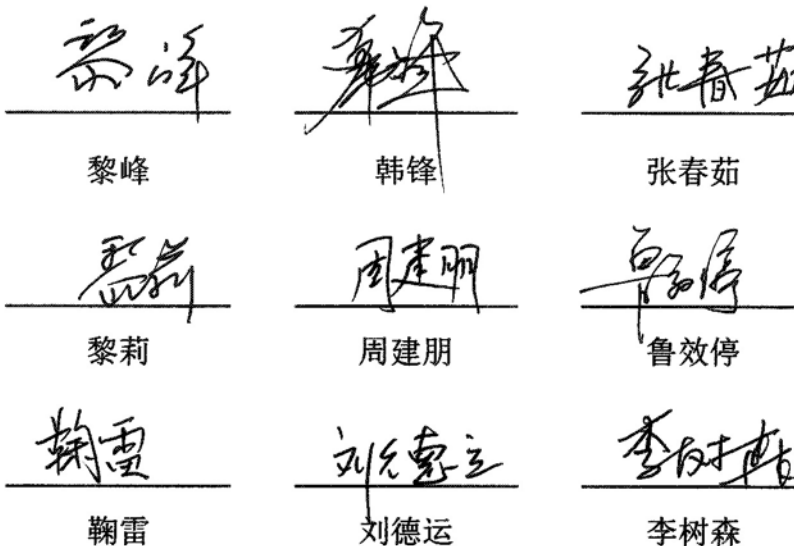 黎峰 韩锋 张春茹
黎峰 韩锋 张春茹
黎莉 周建朋 鲁效停
黎莉 周建朋 鲁效停
鞠雷 刘德运 李树森
鞠雷 刘德运 李树森